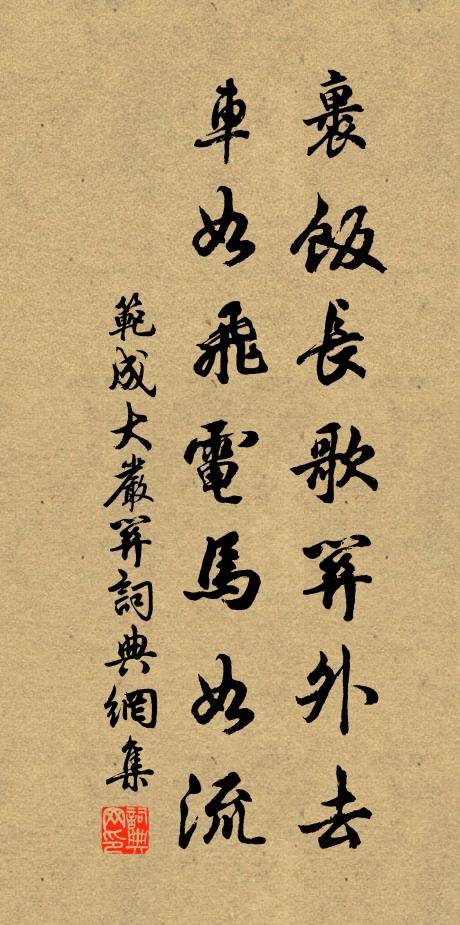 裹飯長歌關外去
車如飛電馬如流
範成大嚴關詞典網集
詞典網印